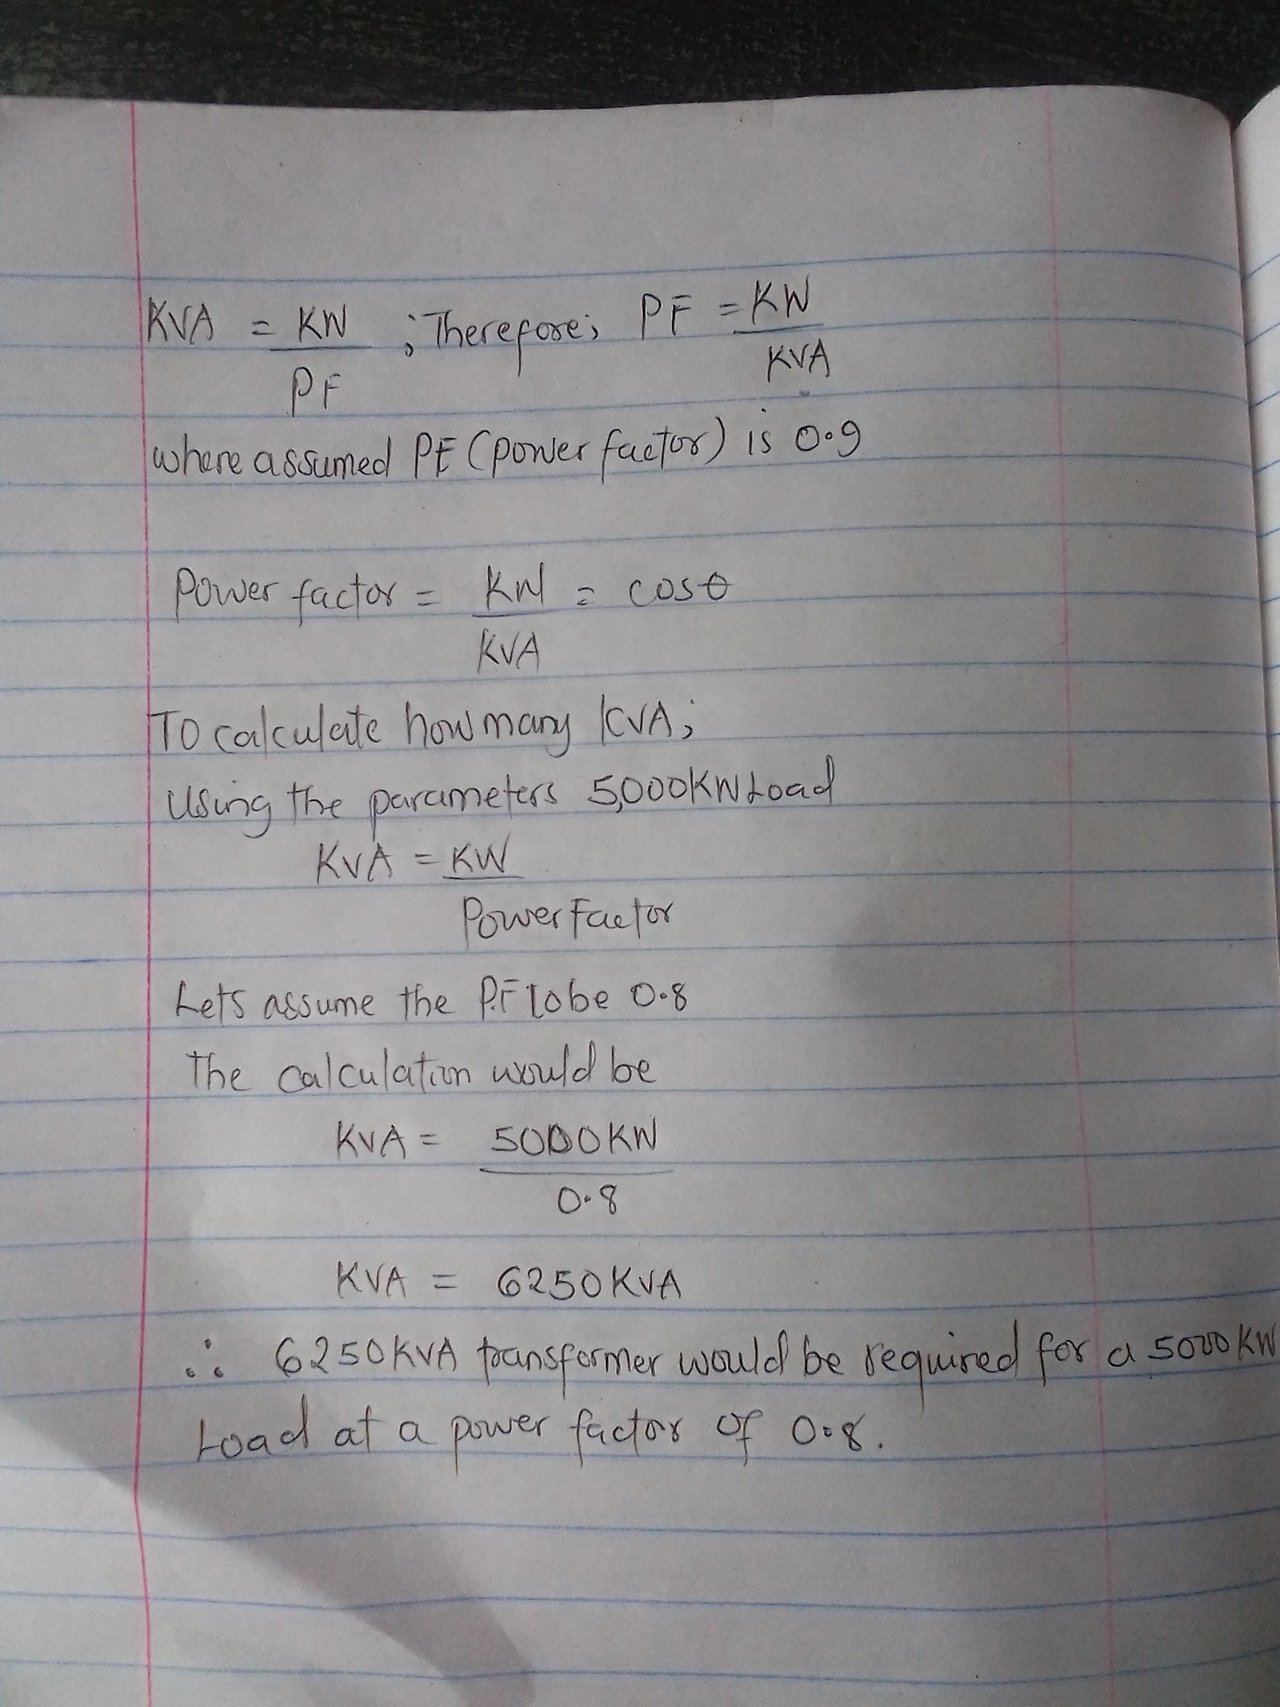 KVA = KW ; Therefore; PF = KW
PF KVA
where assumed PF (power factor) is 0.9
Power factor = KW = cosθ
KVA
To calculate how many KVA;
Using the parameters 5,000KW Load
KVA = KW
Power Factor
Lets assume the P.F to be 0.8
The calculation would be
KVA = 5000KW
0.8
KVA = 6250KVA
∴ 6250KVA transformer would be required for a 5000KW
Load at a power factor of 0.8.